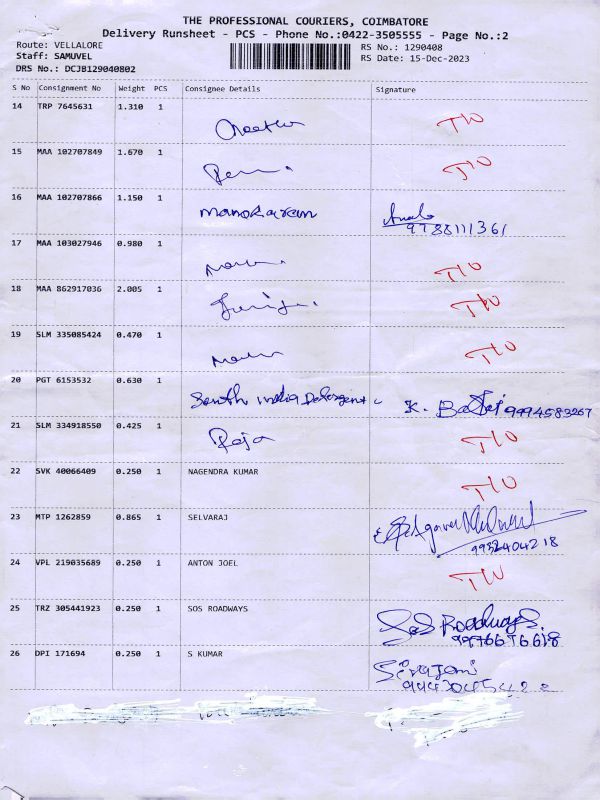 THE PROFESSIONAL COURIERS, COIMBATORE
Delivery Runsheet - PCS - Phone No.:0422-3505555 - Page No.:2
Route: VELLALORE RS No.: 1290408
Staff: SAMUVEL RS Date: 15-Dec-2023
DRS No.: DCJB129040802
S No Consignment No Weight PCS Consignee Details Signature
14 TRP 7645631 1.310 1 T/O
15 MAA 102707849 1.670 1 T/O
16 MAA 102707866 1.150 1 manokaran
9788111361
17 MAA 103027946 0.980 1 T/O
18 MAA 862917036 2.005 1 T/O
19 SLM 335085424 0.470 1 T/O
20 PGT 6153532 0.630 1 South india Detergent K. 9994583267
21 SLM 334918550 0.425 1 Raja T/O
22 SVK 40066409 0.250 1 NAGENDRA KUMAR T/O
23 MTP 1262859 0.865 1 SELVARAJ
24 VPL 219035689 0.250 1 ANTON JOEL T/O
25 TRZ 305441923 0.250 1 SOS ROADWAYS SoS Roadways.
26 DPI 171694 0.250 1 S KUMAR